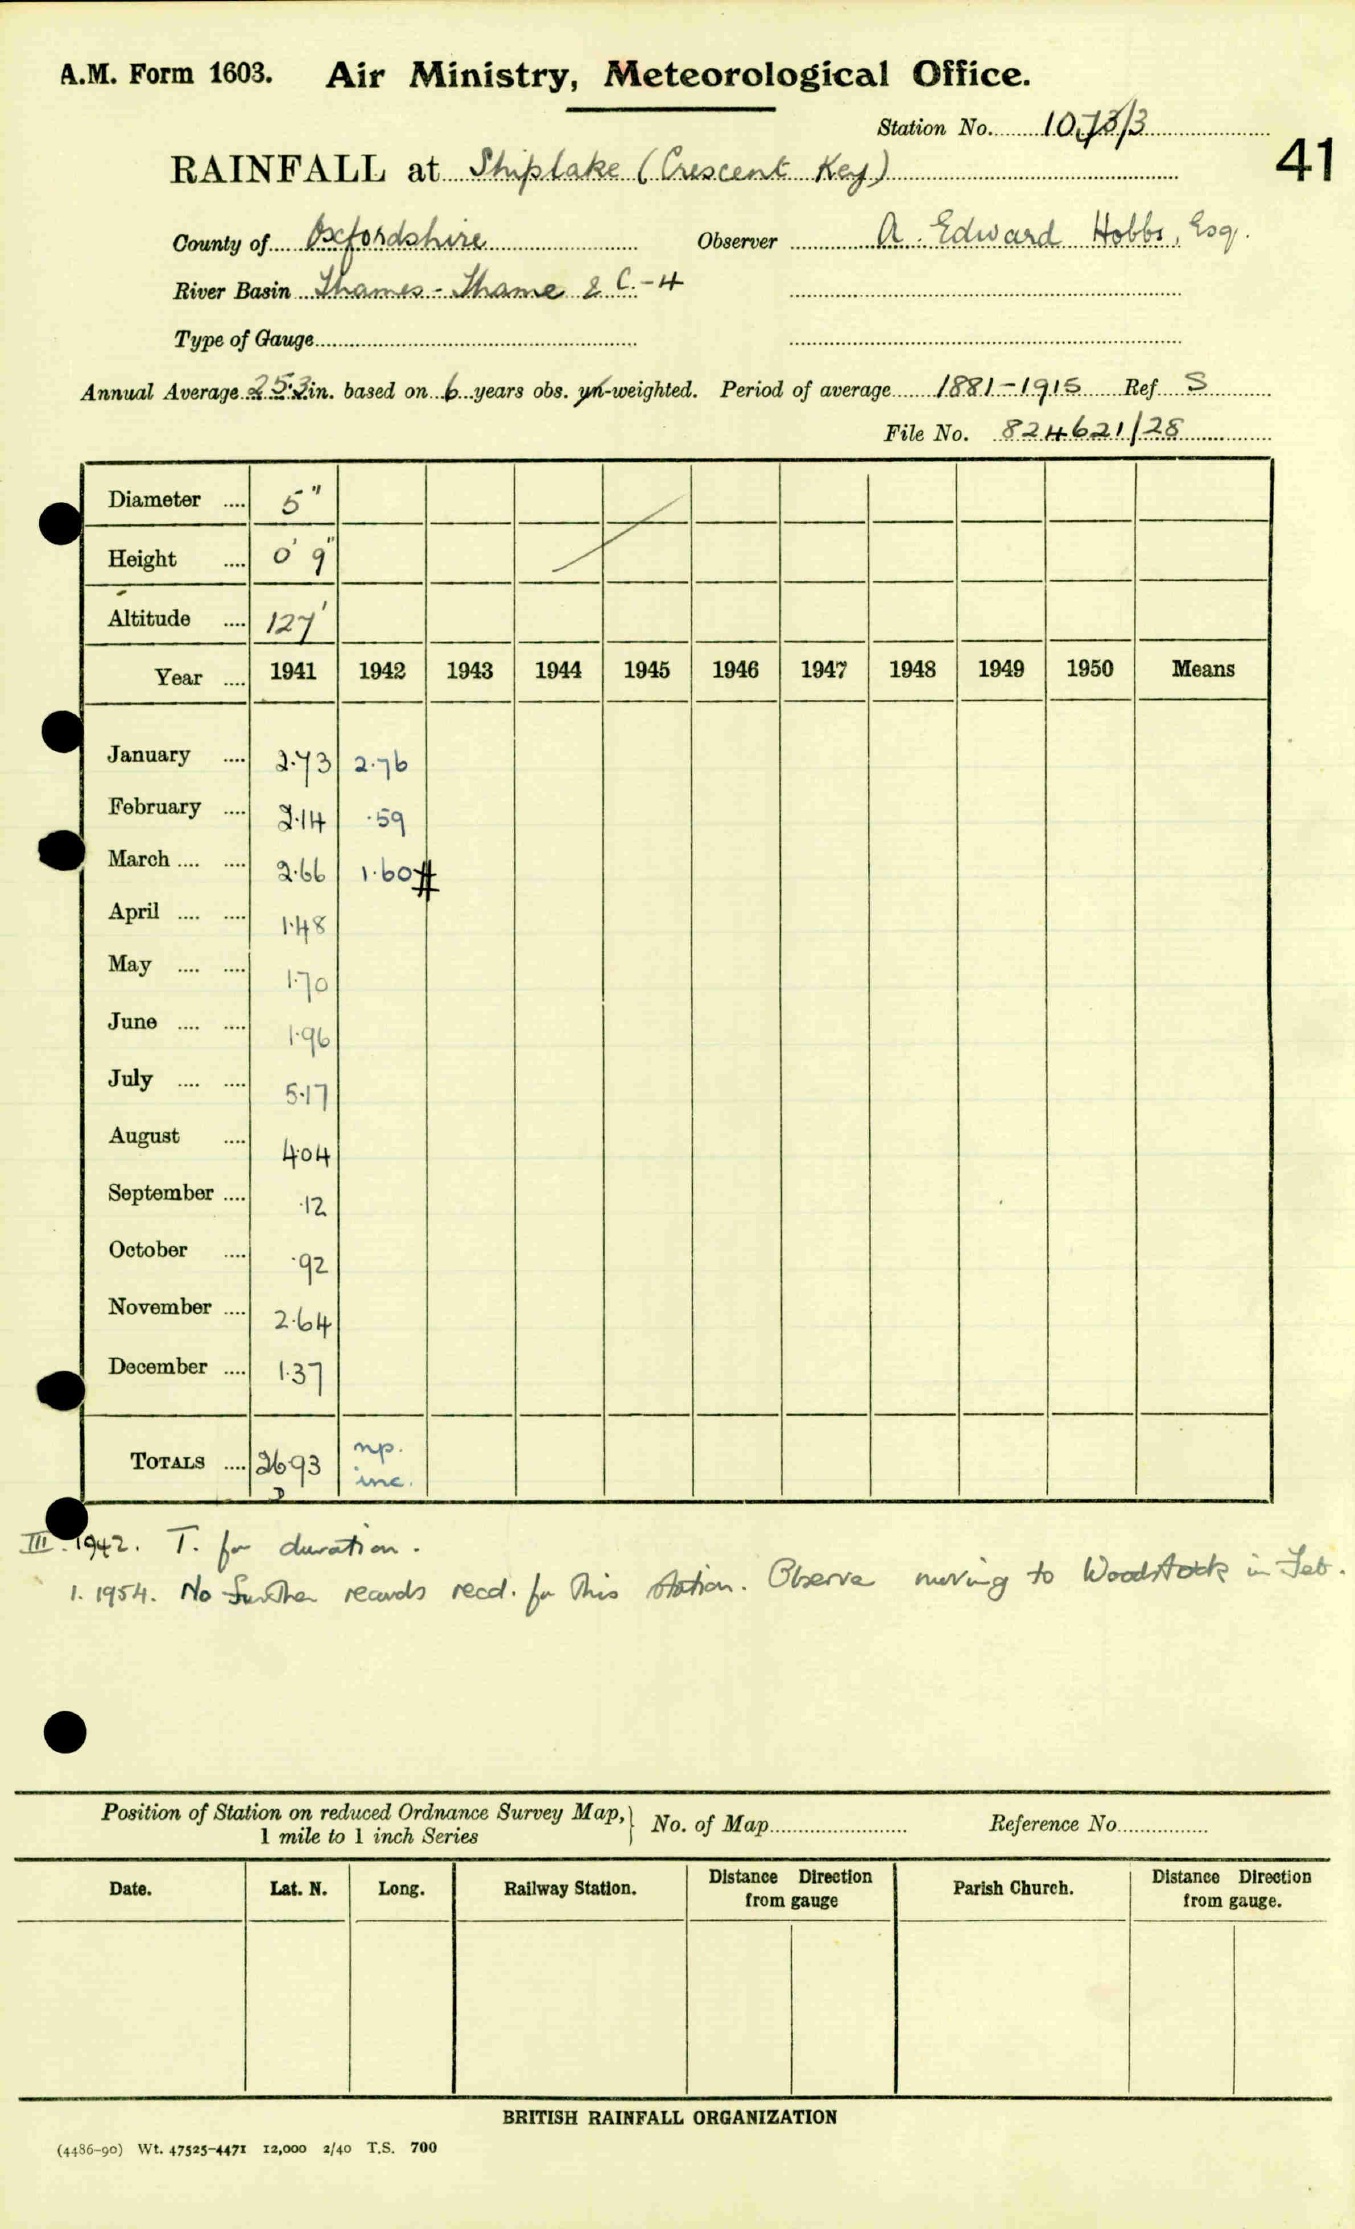 A.M. Form 1603. Air Ministry, Meteorological Office.
Station No. 10,73/3
41
RAINFALL at Shiplake (Crescent Key)
County of Oxfordshire Observer A. Edward Hobbs, Esq.
River Basin Thames - Thame & C. - 4
Type of Gauge
Annual Average 25.3 in. based on 6 years obs. un-weighted. Period of average 1881-1915 Ref S
File No. 824621/28
Diameter .... 5"
Height .... 0' 9"
Altitude .... 127'
Year .... 1941 1942 1943 1944 1945 1946 1947 1948 1949 1950 Means
January .... 2.73 2.76
February .... 2.14 .59
March .... .... 2.66 1.60#
April .... .... 1.48
May .... .... 1.70
June .... .... 1.96
July .... .... 5.17
August .... 4.04
September .... .12
October .... .92
November .... 2.64
December .... 1.37
TOTALS .... 26.93 np. inc.
D
III. 1942. T. for duration.
1. 1954. No further records recd. for this station. Observer moving to Woodstock in Feb.
Position of Station on reduced Ordnance Survey Map, } No. of Map Reference No.
1 mile to 1 inch Series
Date. Lat. N. Long. Railway Station. Distance Direction from gauge Parish Church. Distance Direction from gauge.
BRITISH RAINFALL ORGANIZATION
(4486-90) Wt. 47525-4471 12,000 2/40 T.S. 700